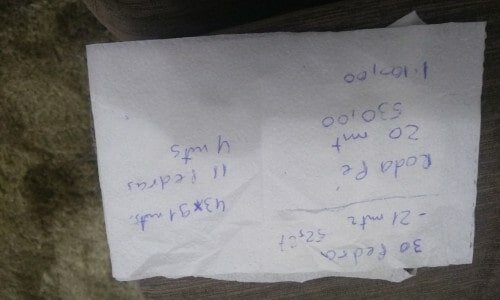 30 Pedra
52x27
- 21 mts
Roda Pé
20 mt
530,00
1.100,00
43x91 mts.
11 Pedras
4 mts